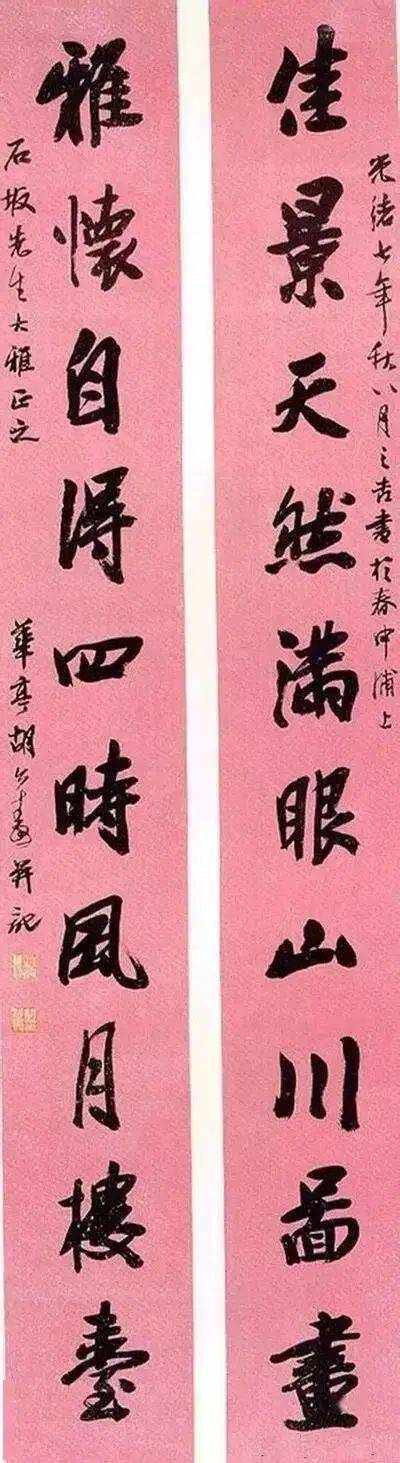 佳景天然满眼山川畵畫
光緒七年秋八月之吉書於春申浦上
雅懷自得四時風月樓臺
石坂先生大雅正之
華亭胡公壽并記